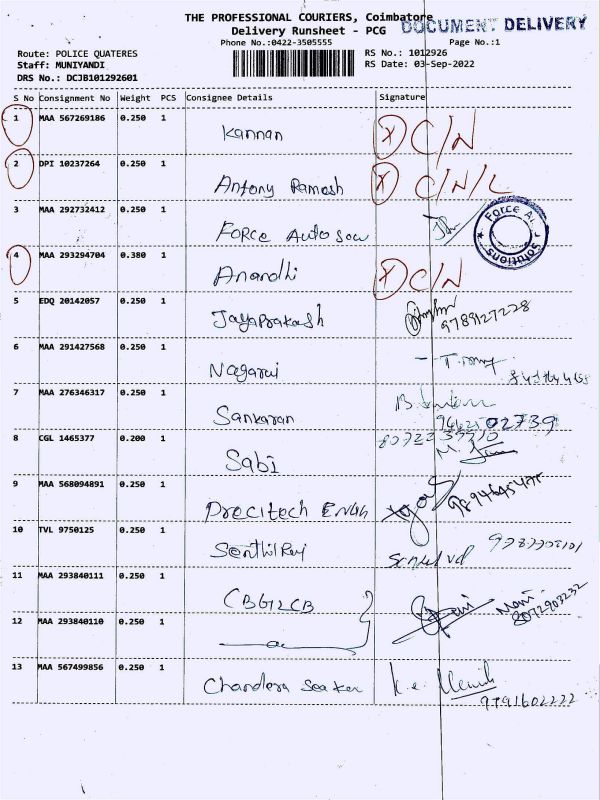 THE PROFESSIONAL COURIERS, Coimbatore
DOCUMENT DELIVERY
Delivery Runsheet - PCG
Phone No.:0422-3505555
Page No.:1
Route: POLICE QUATERES
RS No.: 1012926
Staff: MUNIYANDI
RS Date: 03-Sep-2022
DRS No.: DCJB101292601
S No Consignment No Weight PCS Consignee Details Signature
1 MAA 567269186 0.250 1 Kannan C/N
2 DPI 10237264 0.250 1 Antony Ramesh C/N/L
3 MAA 292732412 0.250 1 Force Auto Sow
Force A. Solutions
4 MAA 293294704 0.380 1 Anandhi C/N
5 EDQ 20142057 0.250 1 Jayaprakash
9789127228
6 MAA 291427568 0.250 1 Nagaraj
7 MAA 276346317 0.250 1 Sankaran
8 CGL 1465377 0.200 1 Sabi
9 MAA 568094891 0.250 1 Precitech Engg
10 TVL 9750125 0.250 1 Senthil Raj
11 MAA 293840111 0.250 1 Mani
8072903232
12 MAA 293840110 0.250 1
13 MAA 567499856 0.250 1 Chandera Seaker
9791602222